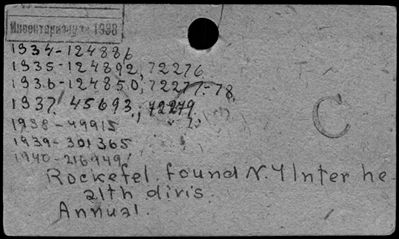 Инвентаризация 1938
1934-124886
1935-124892, 72276
1936-124850, 72277-78.
1937. 45693., 72279
1938-49915
1939-301365
1940-216949
C
Rockefel. found N.Y Inter he-
alth divis.
Annual.